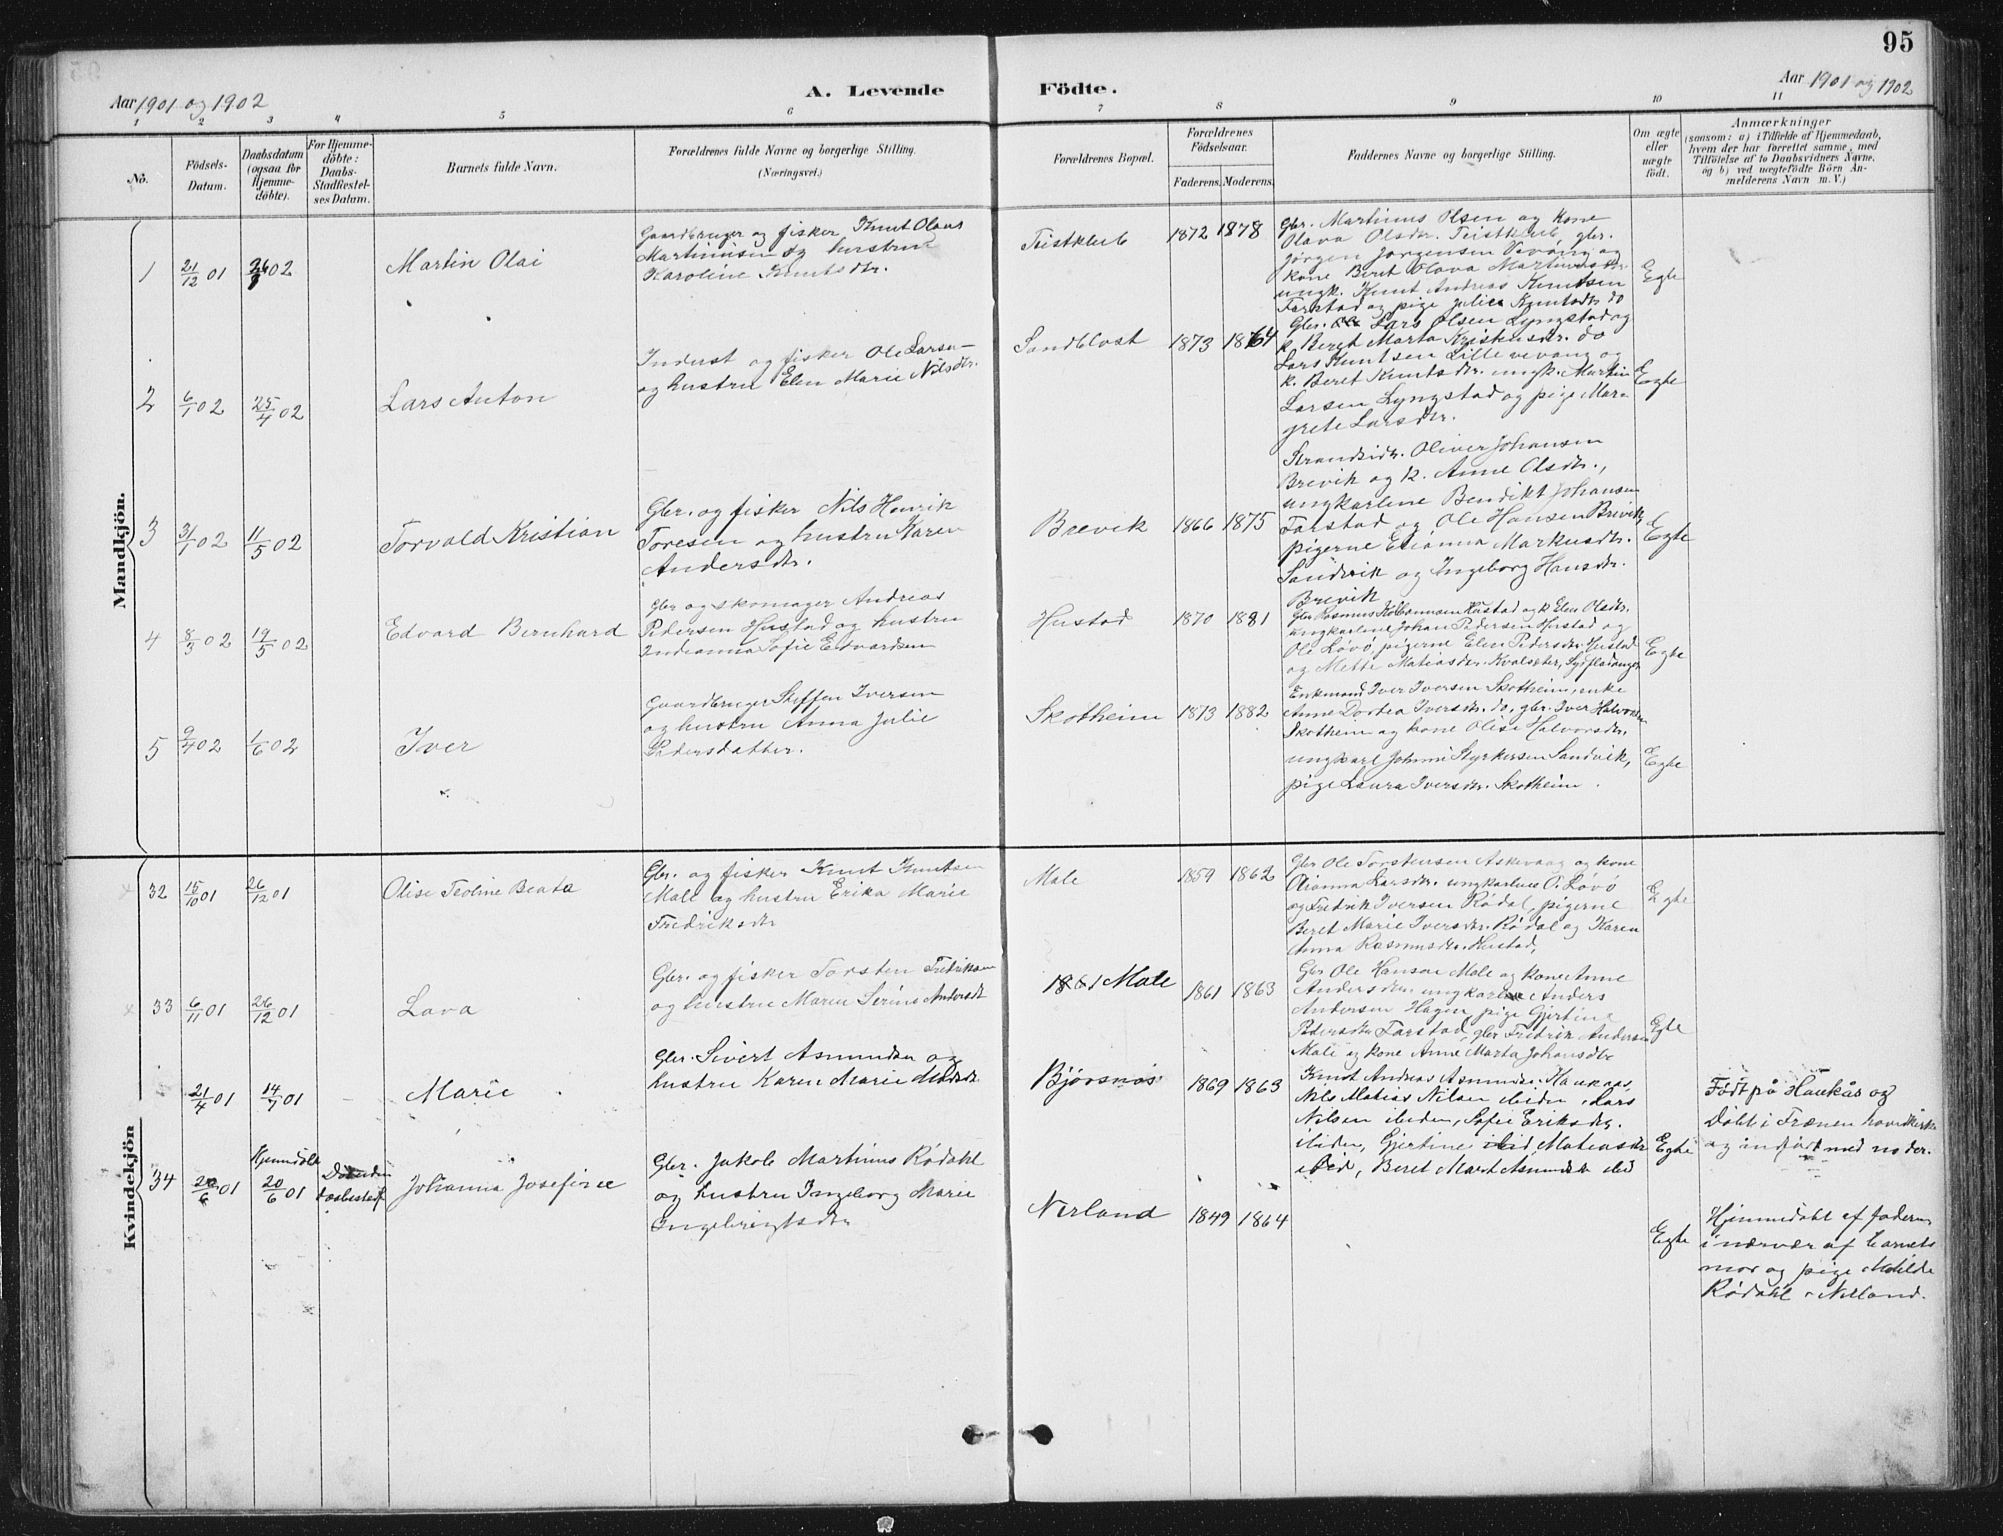 95
Aar 1901 og 1902
A. Levende
Födte.
Aar 1901 og 1902
1 2 3 4 5 6 7 8 9 10 11
No.
Födsels-
Datum.
Daabsdatum
(ogsaa for
Hjemme-
döbte).
For Hjemme-
döbte:
Daabs-
Stadfæstel-
ses Datum.
Barnets fulde Navn.
Forældrenes fulde Navne og borgerlige Stilling.
(Næringsvei.)
Forældrenes Bopæl.
Forældrenes
Födselsaar.
Faderens. Moderens.
Faddernes Navne og borgerlige Stilling.
Om ægte
eller
uægte
födt.
Anmærkninger
(saasom: a) i Tilfælde af Hjemmedaab,
hvem der har forrettet samme, med
Tilföielse af to Daabsvidners Navne,
og b) ved uægtefödte Börn An-
melderens Navn m. V.)
Mandkjön.
1
21/12 01
02
Martin Olai
Gaardbruger og fisker Knut Olaus
Martinusen og hustru
Karoline Knutsdtr.
Teistklub
1872 1878
Gbr. Martinus Olsen og kone
Olava Olsdtr. Teistklub, gbr.
Jørgen Jørgensen Vevang og
kone Beret Olava Martinusdtr
ungk. Knut Andreas Knutsen
Farstad og pige Julie Knutsdtr do
Egte
2
6/1 02
25/4 02
Lars Anton
Inderst og fisker Ole Larsen
og hustru Elen Marie Nilsdtr.
Sandblost
1873 1864
Gbr. Lars Olsen Lyngstad og
k. Beret Marta Kristensdtr. do
Lars Knutsen Lille vevang og
k. Beret Knutsdtr. ungk. Martin
Larsen Lyngstad og pige Mar-
grete Larsdtr.
Egte
3
31/1 02
11/5 02
Torvald Kristian
Gbr. og fisker Nils Henrik
Toresen og hustru Karen
Andersdtr.
Brevik
1866 1875
Strandsidr. Oliver Johansen
Brevik og k. Anne Olsdtr.,
ungkarlene Bendikt Johansen
Farstad og Ole Hansen Brevik,
pigerne Elianna Markusdtr.
Sandvik og Ingeborg Hansdtr.
Brevik
Egte
4
8/3 02
19/5 02
Edvard Bernhard
Gbr og skomager Andreas
Pedersen Hustad og hustru
Indianna Sofie Edvardsen
Hustad
1870 1881
Gbr Rasmus Kolbeinsen Hustad og k. Elen Olsdtr.
ungkarlene Johan Pedersen Hustad og
Ole Løvø, pigerne Elen Pedersdtr. Hustad
og Mette Matiasdtr. Kvalseter,
Egte
5
9/4 02
1/6 02
Iver
Gaardbruger Steffen Iversen
og hustru Anna Julie
Pedersdatter.
Skotheim
1873 1882
Enkemand Iver Iversen Skotheim, enke
Anne Dortea Iversdtr. do, gbr. Iver Halvorsen
Skotheim og kone Olise Halvorsdtr.
ungkarl Johan Styrkersen Sandvik,
pige Laura Iversdtr. Skotheim.
Egte
Kvindekjön
32
15/10 01
26/12 01
Olise Teoline Beata
Gbr. og fisker Knut Knutsen
Male og hustru Erika Marie
Fredriksdtr
Male
1859 1862
Gbr Ole Torstensen Askevaag og kone
Olianna Larsdtr. ungkarlene O. Løvø
og Fredrik Iversen Rødal, pigerne
Beret Marie Iversdtr. Rødal og Karen
Anna Rasmusdtr. Hustad,
Egte
33
6/11 01
26/12 01
Lava
Gbr. og fisker Torsten Fredriksen
og hustru Maren Serine Andersdt
1861 Male
1861 1863
Gbr Ole Hansen Male og kone Anne
Andersdtr. ungkarlene Anders
Andersen Hagen pige Gjertine
Pedersdtr Farstad, gbr Fredrik Andersen
Male og kone Anne Marta Johansdtr
Egte
21/4 01
14/7 01
Marie
Gbr. Sivert Asmundsen og
hustru Karen Marie
Bjørsnøs
1869 1863
Knut Andreas Asmundsen Haukaas,
Nils Matias Nilsen ibiden, Lars
Nilsen ibiden, Sofie Eriksdtr.
ibiden, Gjertine ibid Matiasdtr
ibid, Beret Mart Asmundsdtr ibid
Egte
Født på Haukås og
Døbt i Frænen hovedkirke
og indført med no der.
34
20/6 01
Hjemdøbt
20/6 01
Død uden
daabsstadf
Johanna Josefine
Gbr. Jakob Martinus Rødahl
og hustru Ingeborg Marie
Ingebrigtsdtr
Nerland
1849 1864
Egte
Hjemmedøbt af faderen
i nærvær af barnets
mor og pige Matilde
Rødahl - Nerland.